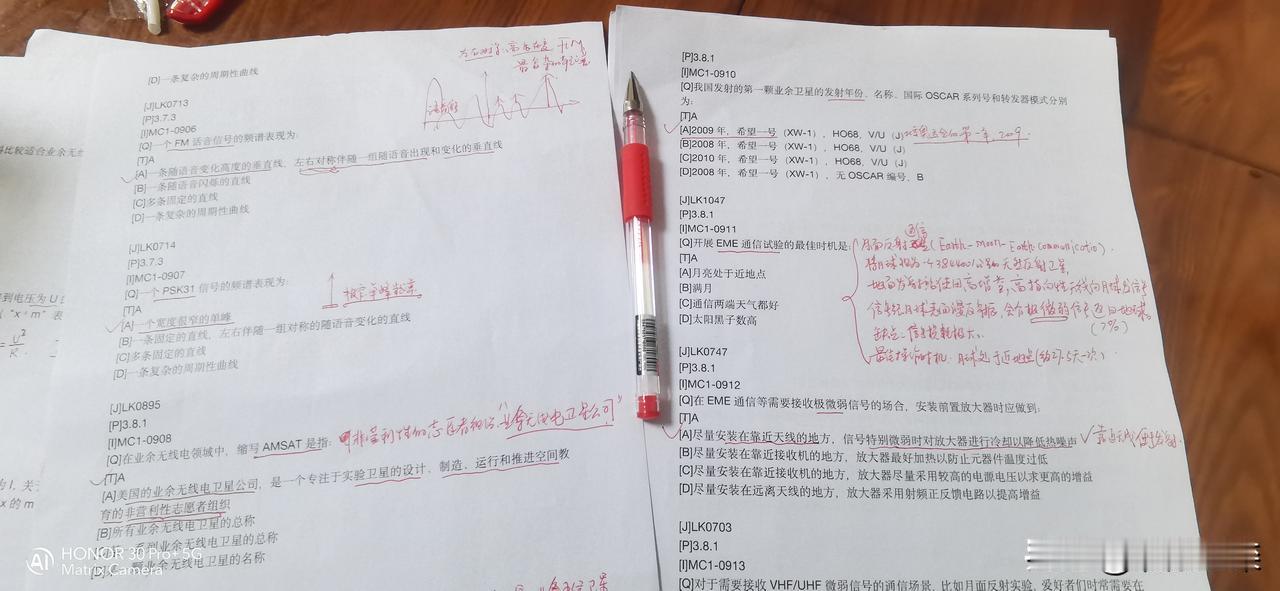 [D]一条复杂的周期性曲线
[J]LK0713
[P]3.7.3
[I]MC1-0906
[Q]一个 FM 话音信号的频谱表现为:
[T]A
[A]一条随语音变化高度的垂直线，左右对称伴随一组随语音出现和变化的垂直线
[B]一条随语音闪烁的直线
[C]多条固定的直线
[D]一条复杂的周期性曲线
[J]LK0714
[P]3.7.3
[I]MC1-0907
[Q]一个 PSK31 信号的频谱表现为:
[T]A
[A]一个宽度很窄的单峰
[B]一条固定的直线，左右伴随一组对称的随语音变化的直线
[C]多条固定的直线
[D]一条复杂的周期性曲线
[J]LK0895
[P]3.8.1
[I]MC1-0908
[Q]在业余无线电领域中，缩写 AMSAT 是指:
非营利性的志愿者组织"业余无线电卫星公司"
[T]A
[A]美国的业余无线电卫星公司，是一个专注于实验卫星的设计、制造、运行和推进空间教
育的非营利性志愿者组织
[B]所有业余无线电卫星的总称
系列业余无线电卫星的总称
颗业余无线电卫星的名称
HONOR 30 Pro+ 5G
Matrix Camera
到电压为 U 的
"x+m" 表
为 I，关于
x 的 m
[P]3.8.1
[I]MC1-0910
[Q]我国发射的第一颗业余卫星的发射年份、名称、国际 OSCAR 系列号和转发器模式分别
为:
[T]A
[A]2009 年，希望一号（XW-1），HO68，V/U（J）
第一年，2009
[B]2008 年，希望一号（XW-1），HO68，V/U（J）
[C]2010 年，希望一号（XW-1），HO68，V/U（J）
[D]2008 年，希望一号（XW-1），无 OSCAR 编号，B
[J]LK1047
[P]3.8.1
[I]MC1-0911
[Q]开展 EME 通信试验的最佳时机是:
通信
月面反射 (Earth-moon-Earth communicatio).
[T]A
[A]月亮处于近地点
[B]满月
[C]通信两端天气都好
[D]太阳黑子数高
信号经月球表面漫反射后，会有极微弱信号返回地球。
(7%)
缺点：信号损耗极大。
最佳操作时机：月球处于近地点(约27.5天一次).
[J]LK0747
[P]3.8.1
[I]MC1-0912
[Q]在 EME 通信等需要接收极微弱信号的场合，安装前置放大器时应做到:
[T]A
[A]尽量安装在靠近天线的地方，信号特别微弱时对放大器进行冷却以降低热噪声
[B]尽量安装在靠近接收机的地方，放大器最好加热以防止元器件温度过低
[C]尽量安装在靠近接收机的地方，放大器尽量采用较高的电源电压以求更高的增益
[D]尽量安装在远离天线的地方，放大器采用射频正反馈电路以提高增益
[J]LK0703
[P]3.8.1
[I]MC1-0913
[Q]对于需要接收 VHF/UHF 微弱信号的通信场景，比如月面反射实验，爱好者们时常需要在